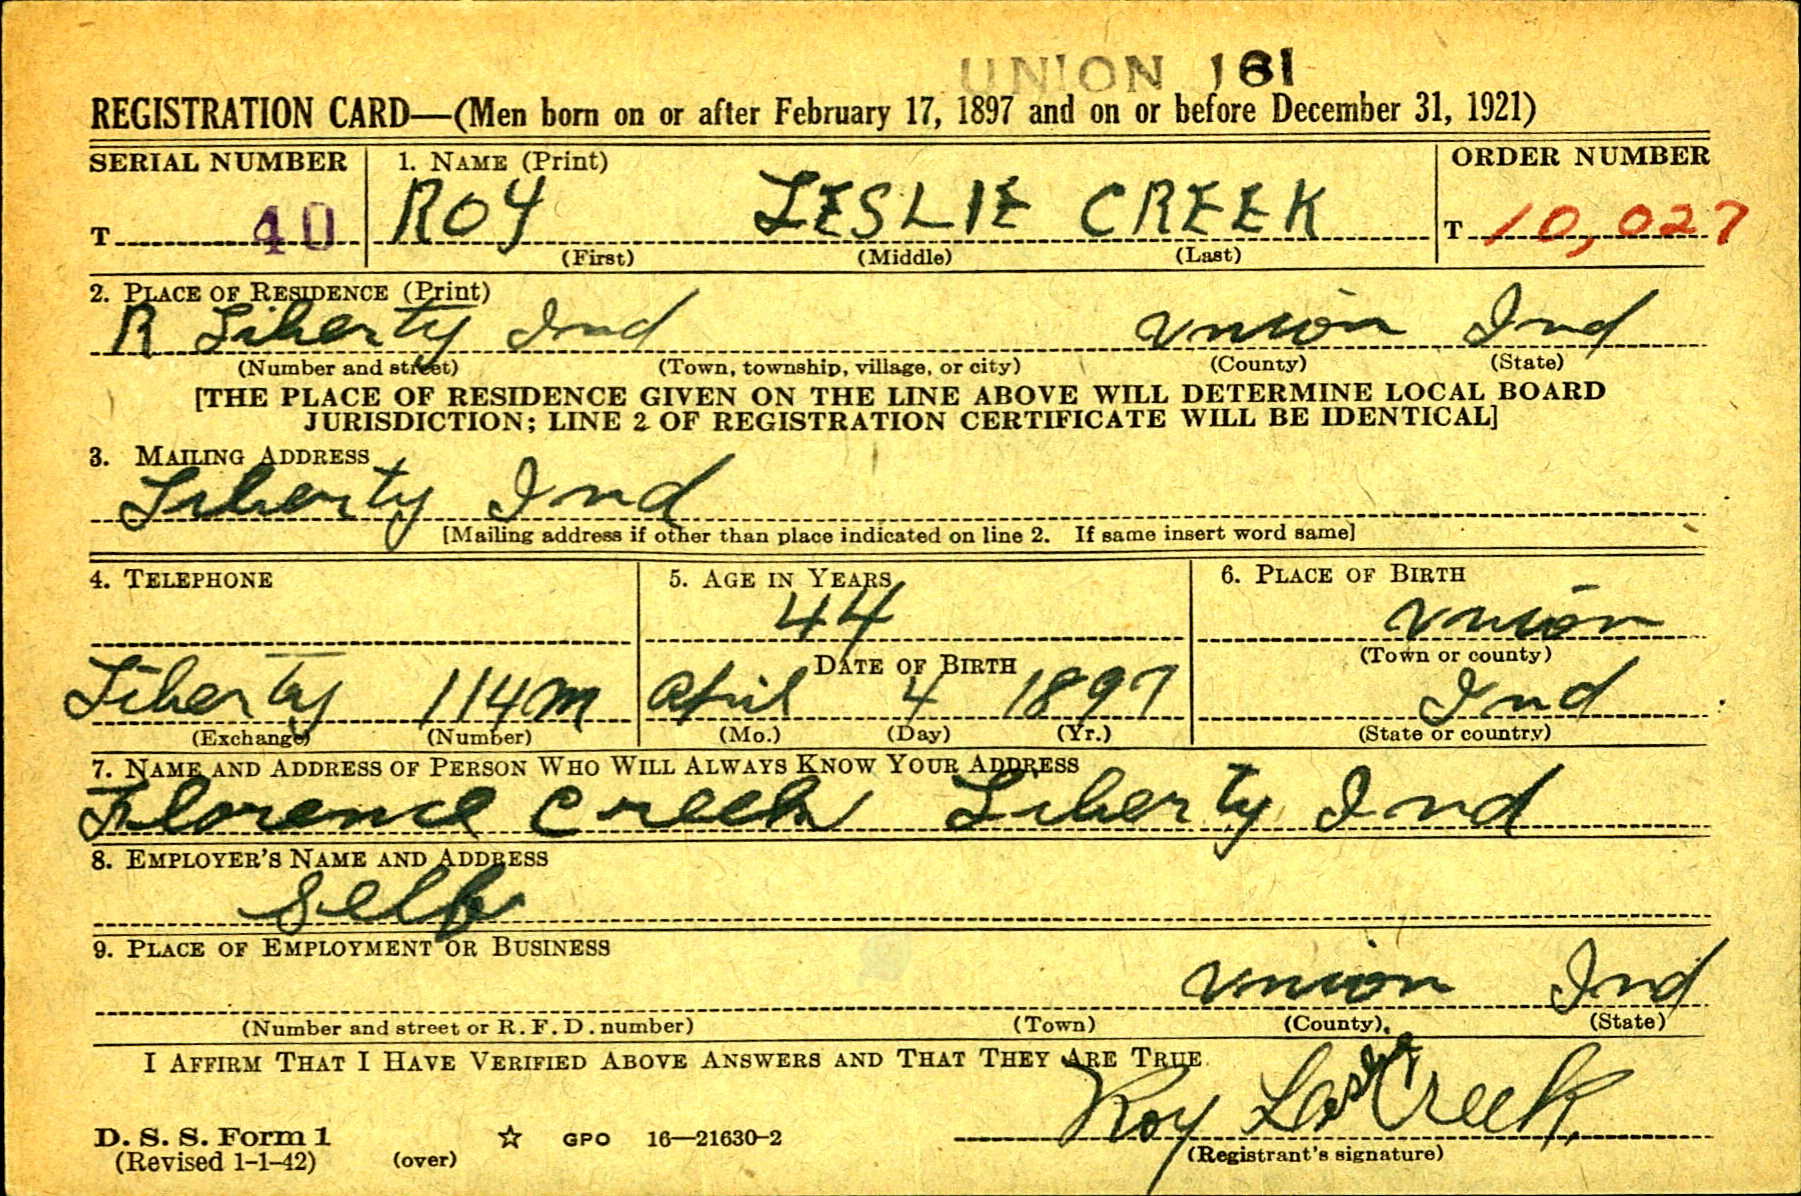 UNION 161
REGISTRATION CARD—(Men born on or after February 17, 1897 and on or before December 31, 1921)
SERIAL NUMBER 1. NAME (Print) ORDER NUMBER
T 40 ROY LESLIE CREEK T 10,027
(First) (Middle) (Last)
2. PLACE OF RESIDENCE (Print)
R Liberty Ind Union Ind
(Number and street) (Town, township, village, or city) (County) (State)
[THE PLACE OF RESIDENCE GIVEN ON THE LINE ABOVE WILL DETERMINE LOCAL BOARD
JURISDICTION; LINE 2 OF REGISTRATION CERTIFICATE WILL BE IDENTICAL]
3. MAILING ADDRESS
Liberty Ind
[Mailing address if other than place indicated on line 2. If same insert word same]
4. TELEPHONE 5. AGE IN YEARS 6. PLACE OF BIRTH
44 Union
DATE OF BIRTH (Town or county)
Liberty 114M April 4 1897 Ind
(Exchange) (Number) (Mo.) (Day) (Yr.) (State or country)
7. NAME AND ADDRESS OF PERSON WHO WILL ALWAYS KNOW YOUR ADDRESS
Florence Creek Liberty Ind
8. EMPLOYER'S NAME AND ADDRESS
Self
9. PLACE OF EMPLOYMENT OR BUSINESS
Union Ind
(Number and street or R. F. D. number) (Town) (County) (State)
I AFFIRM THAT I HAVE VERIFIED ABOVE ANSWERS AND THAT THEY ARE TRUE.
Roy Leslie Creek
D. S. S. Form 1
(Revised 1-1-42) (over) ☆ GPO 16—21630-2 (Registrant's signature)